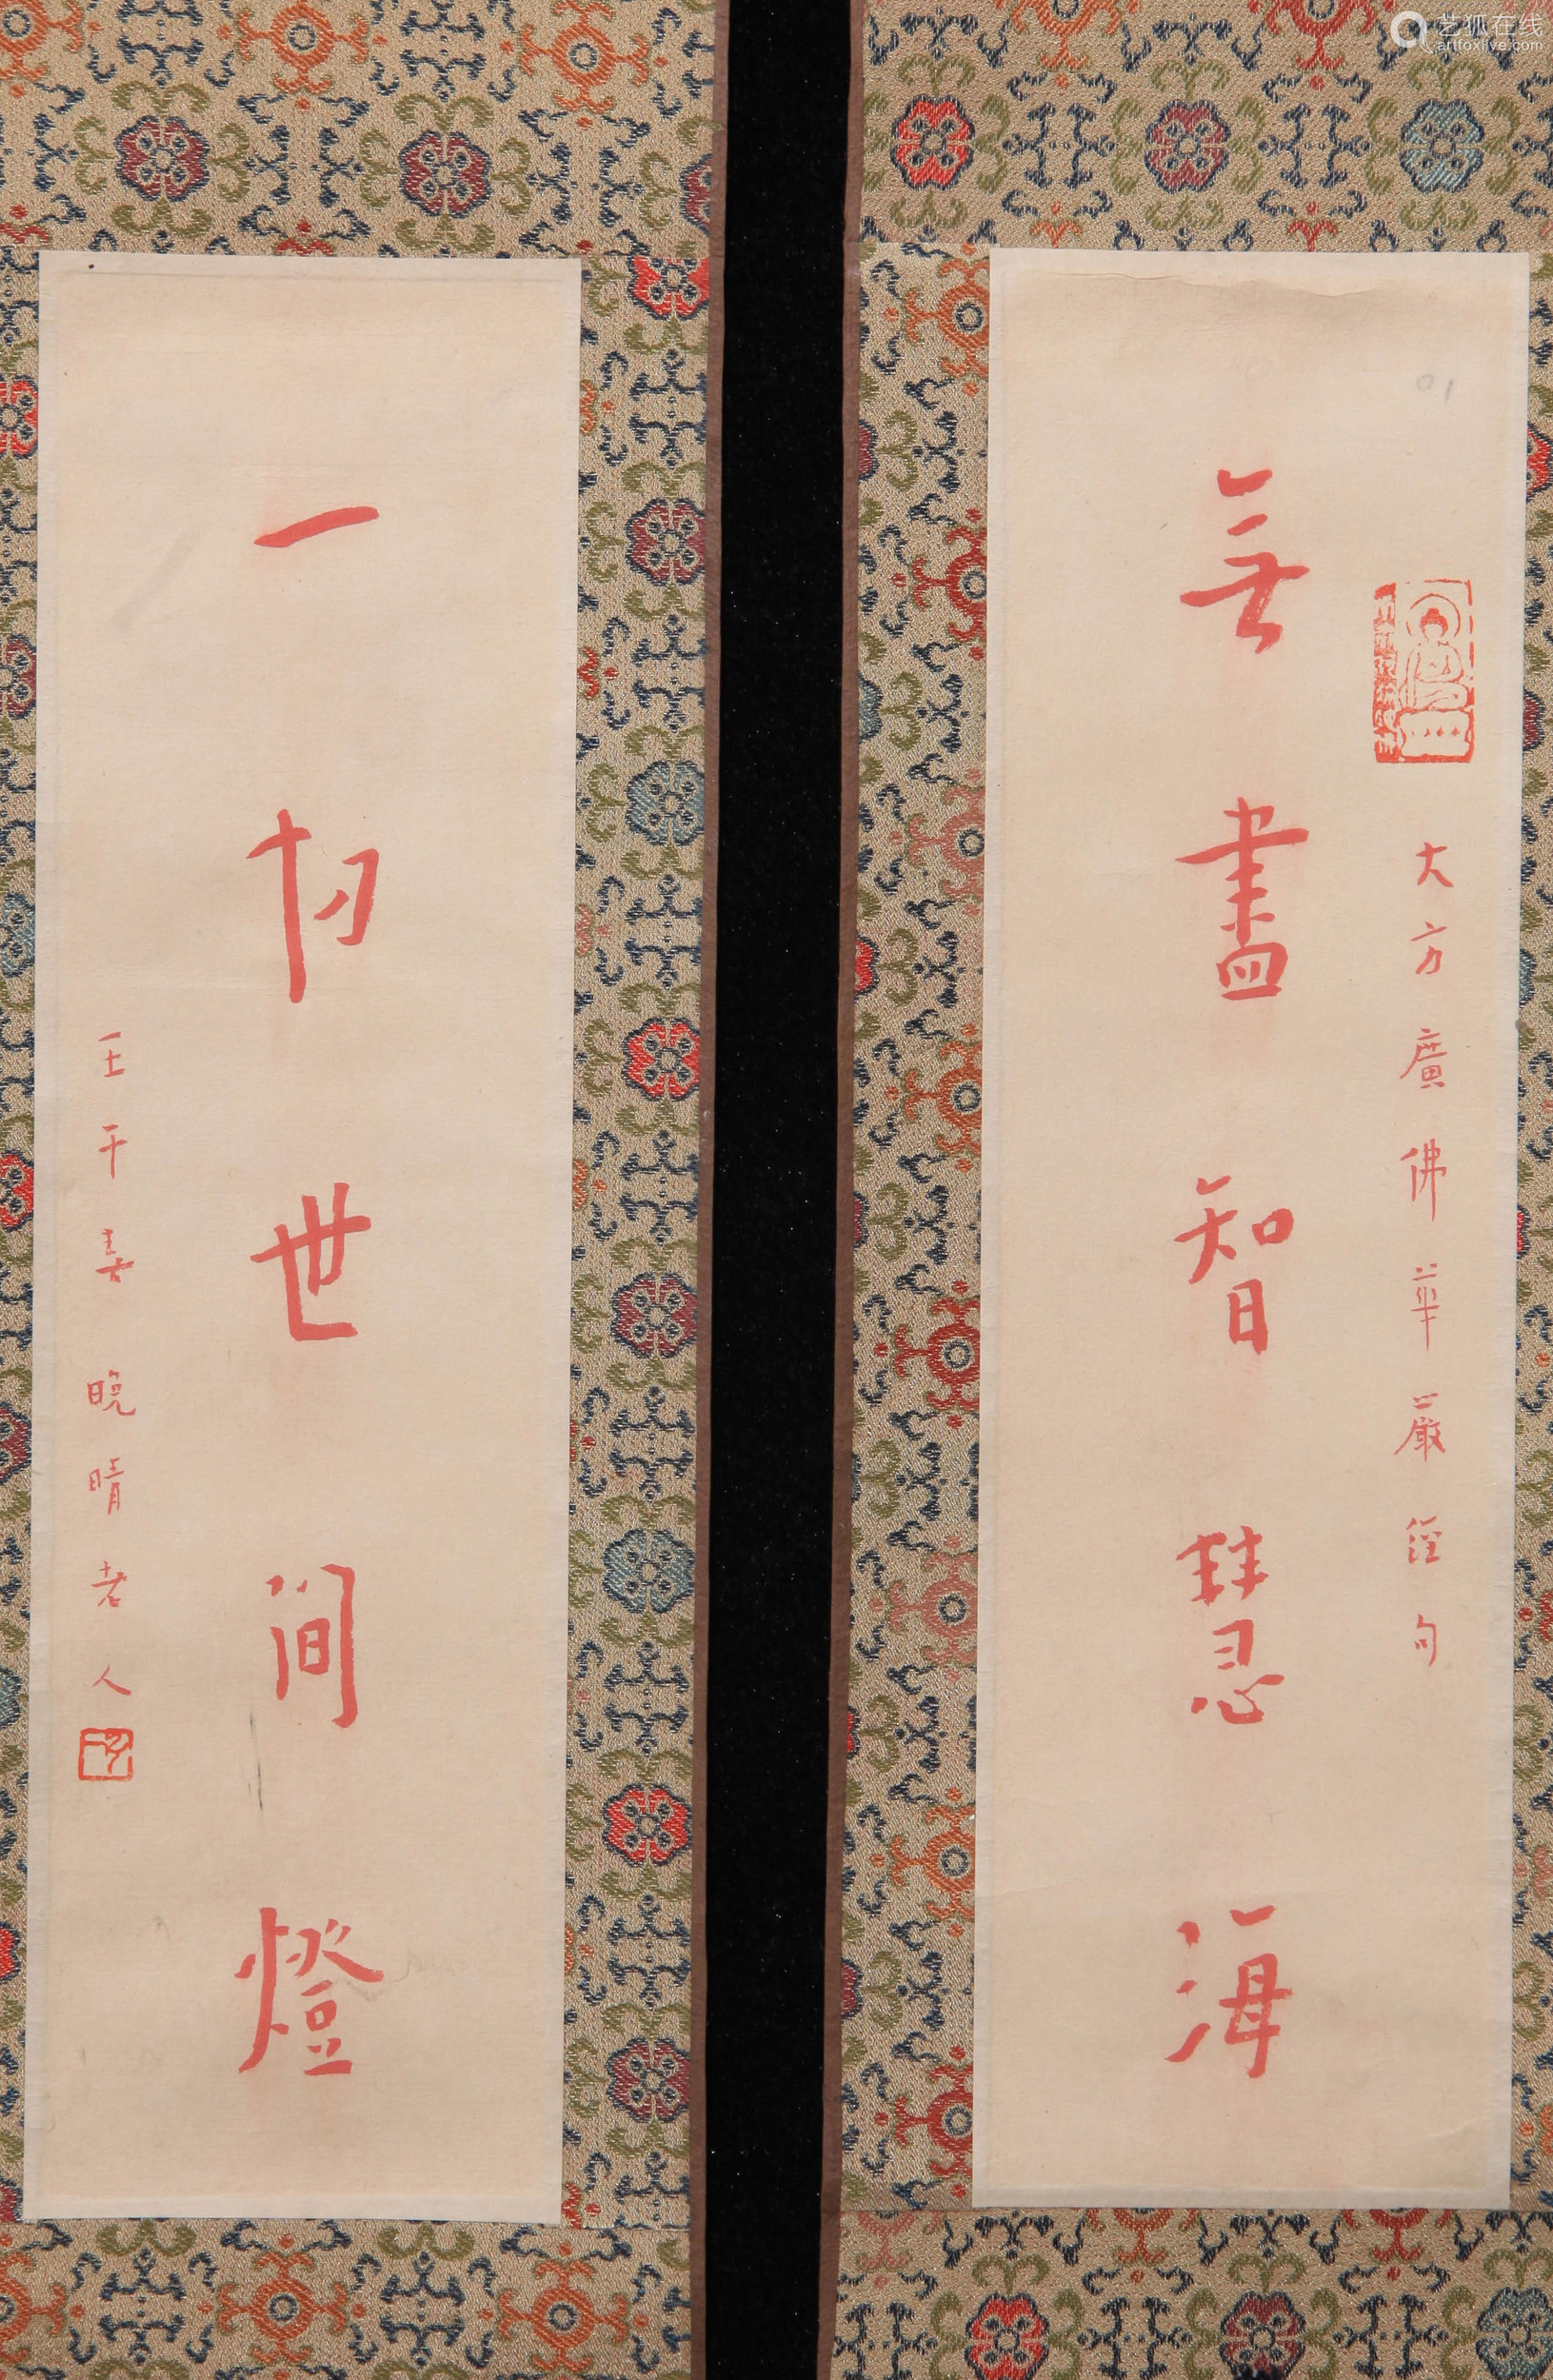 大方廣佛華嚴經句
無盡智慧海
一切世間燈
壬午春晚晴老人
艺狐在线
artfoxlive.com
01